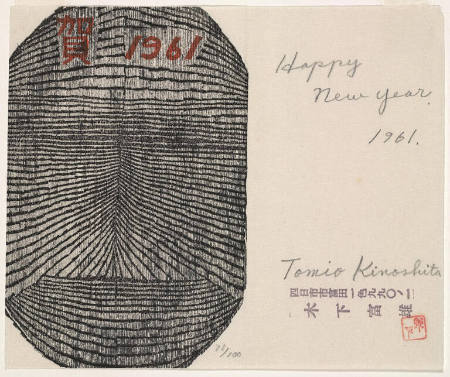 賀 1961
Happy
New Year.
1961.
Tomio Kinoshita
四日市市富田一色九九〇ノ一
木下富雄
/200